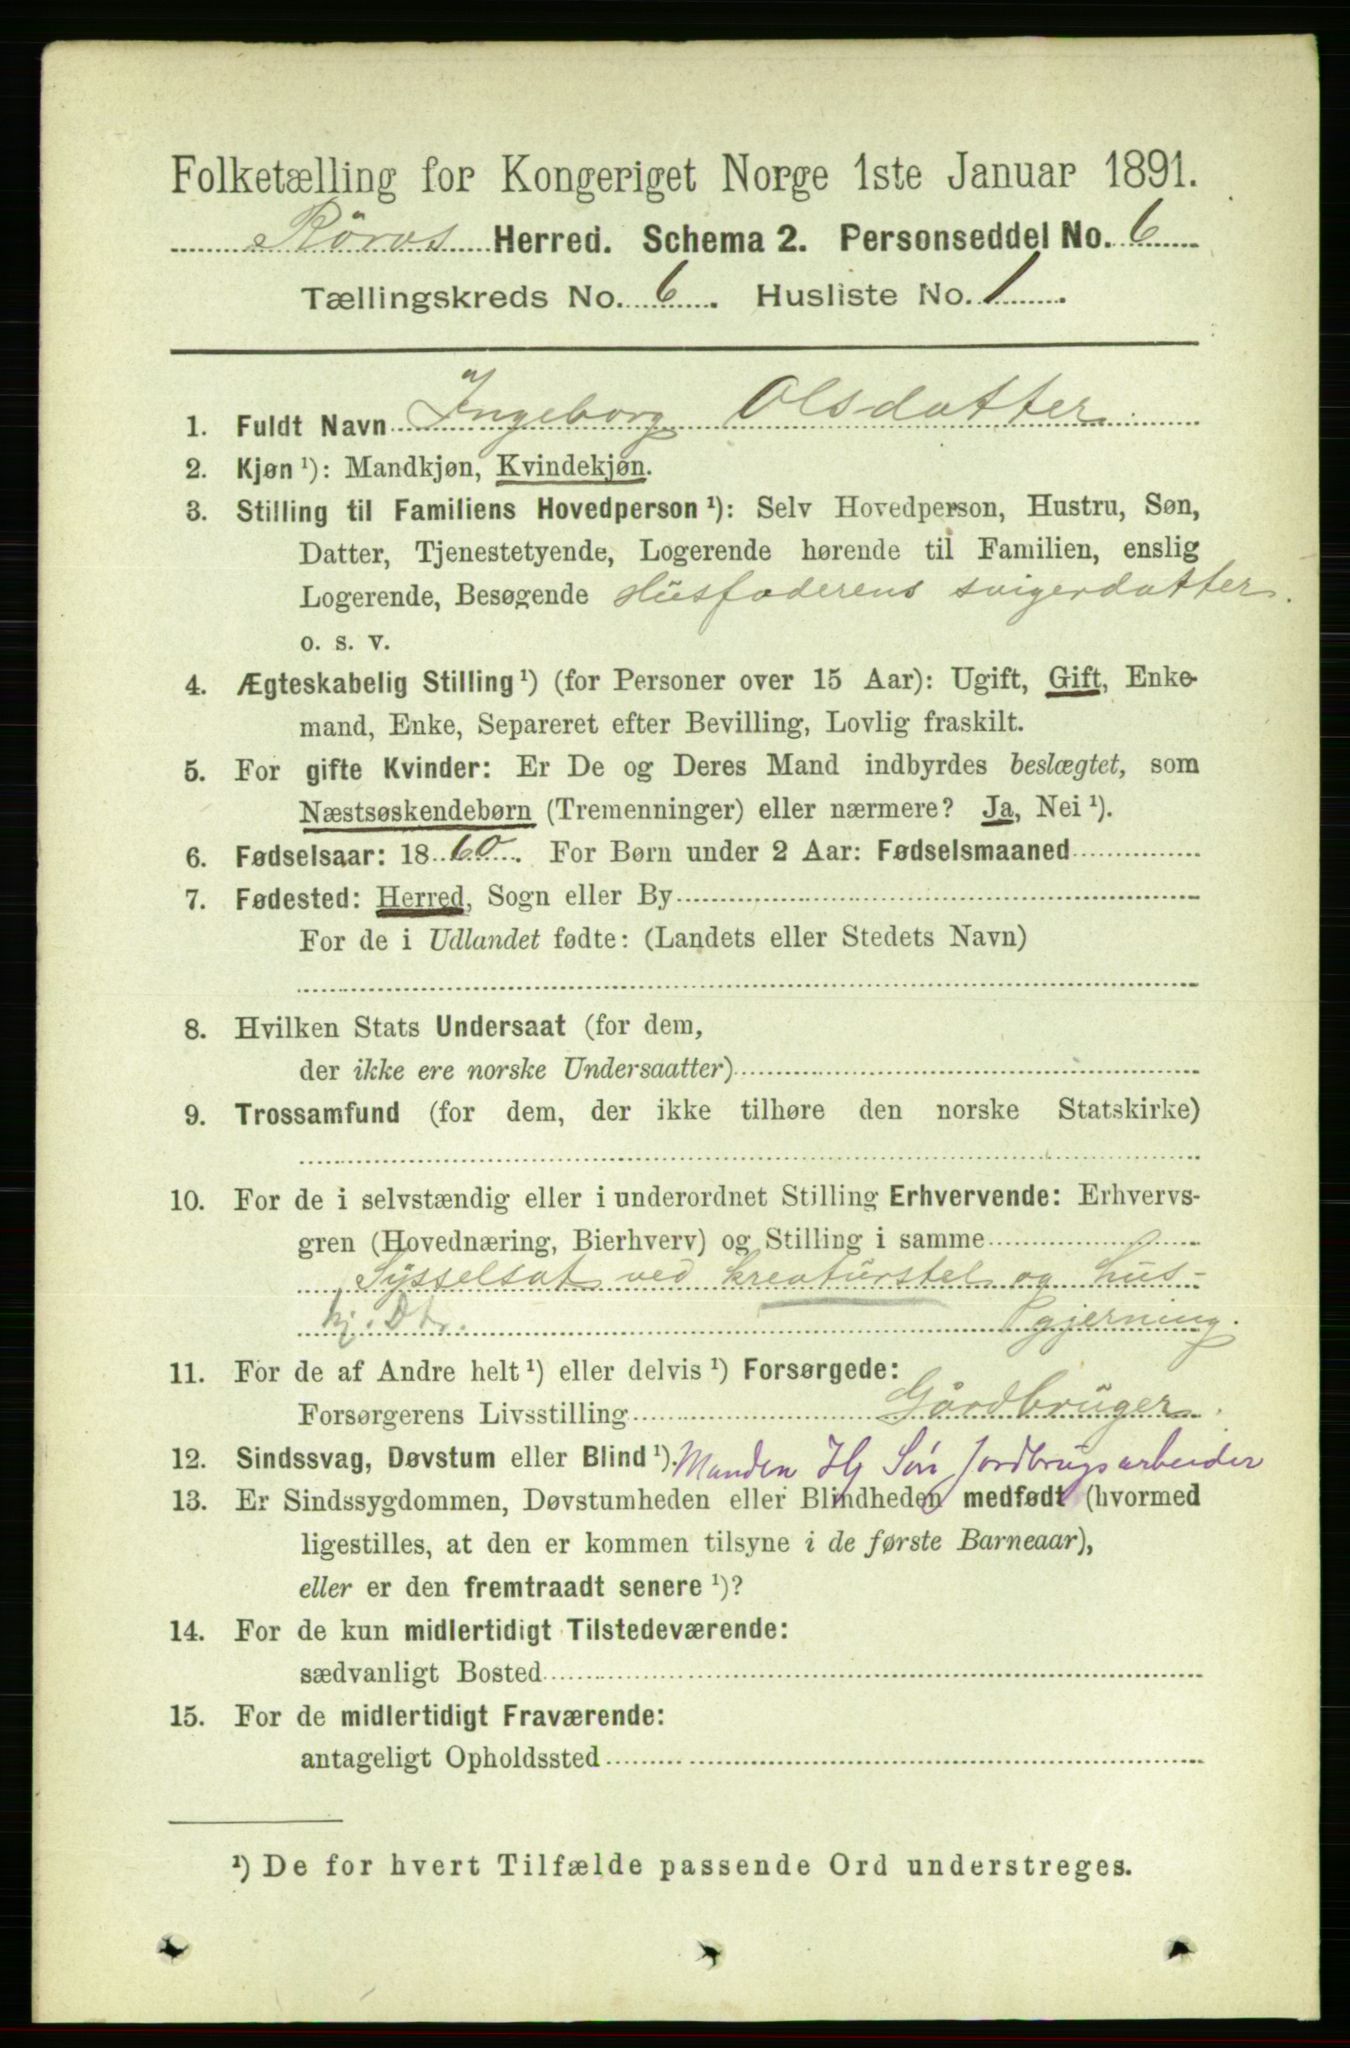 Folketælling for Kongeriget Norge 1ste Januar 1891.
Röros Herred. Schema 2. Personseddel No. 6
Tællingskreds No. 6. Husliste No. 1.
1. Fuldt Navn Ingeborg Olsdatter
2. Kjøn ¹): Mandkjøn, Kvindekjøn.
3. Stilling til Familiens Hovedperson ¹): Selv Hovedperson, Hustru, Søn,
Datter, Tjenestetyende, Logerende hørende til Familien, enslig
Logerende, Besøgende Husfaderens svigerdatter.
o. s. v.
4. Ægteskabelig Stilling ¹) (for Personer over 15 Aar): Ugift, Gift, Enke-
mand, Enke, Separeret efter Bevilling, Lovlig fraskilt.
5. For gifte Kvinder: Er De og Deres Mand indbyrdes beslægtet, som
Næstsøskendebørn (Tremenninger) eller nærmere? Ja, Nei ¹).
6. Fødselsaar: 1860. For Børn under 2 Aar: Fødselsmaaned
7. Fødested: Herred, Sogn eller By
For de i Udlandet fødte: (Landets eller Stedets Navn)
8. Hvilken Stats Undersaat (for dem,
der ikke ere norske Undersaatter)
9. Trossamfund (for dem, der ikke tilhøre den norske Statskirke)
10. For de i selvstændig eller i underordnet Stilling Erhvervende: Erhvervs-
gren (Hovednæring, Bierhverv) og Stilling i samme
Sysselsat ved kreaturstel og hus-
hj. Dtr. gjerning.
11. For de af Andre helt ¹) eller delvis ¹) Forsørgede:
Forsørgerens Livsstilling Gårdbruger.
12. Sindssvag, Døvstum eller Blind ¹). Manden Hj Søn Jordbrugsarbeider
13. Er Sindssygdommen, Døvstumheden eller Blindheden medfødt (hvormed
ligestilles, at den er kommen tilsyne i de første Barneaar),
eller er den fremtraadt senere ¹)?
14. For de kun midlertidigt Tilstedeværende:
sædvanligt Bosted
15. For de midlertidigt Fraværende:
antageligt Opholdssted
¹) De for hvert Tilfælde passende Ord understreges.